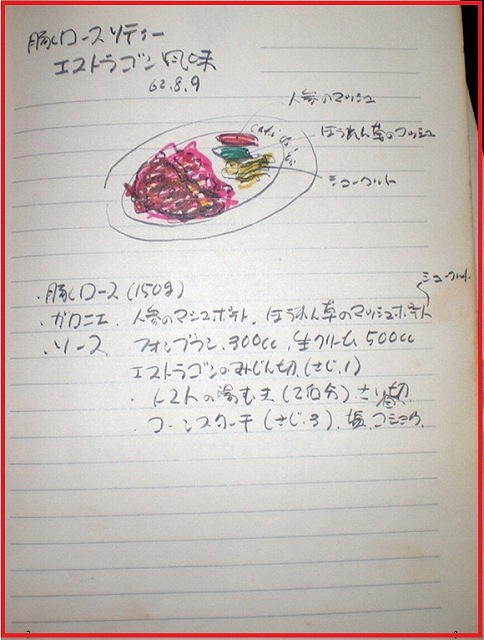 豚ロースソティー
エストラゴン風味
62.8.9
人参のマッシュ
ほうれん草のマッシュ
シュークルート
・豚ロース(150g)
シュークルート
・ガロニエ 人参のマシュポテト、ほうれん草のマッシュポテト
・ソース フォンブラン 300cc、生クリーム 500cc
エストラゴンのみじん切(さじ1)
・トマトの湯むき(2百分)さいの切
・コーンスターチ(さじ.3)、塩、コショウ